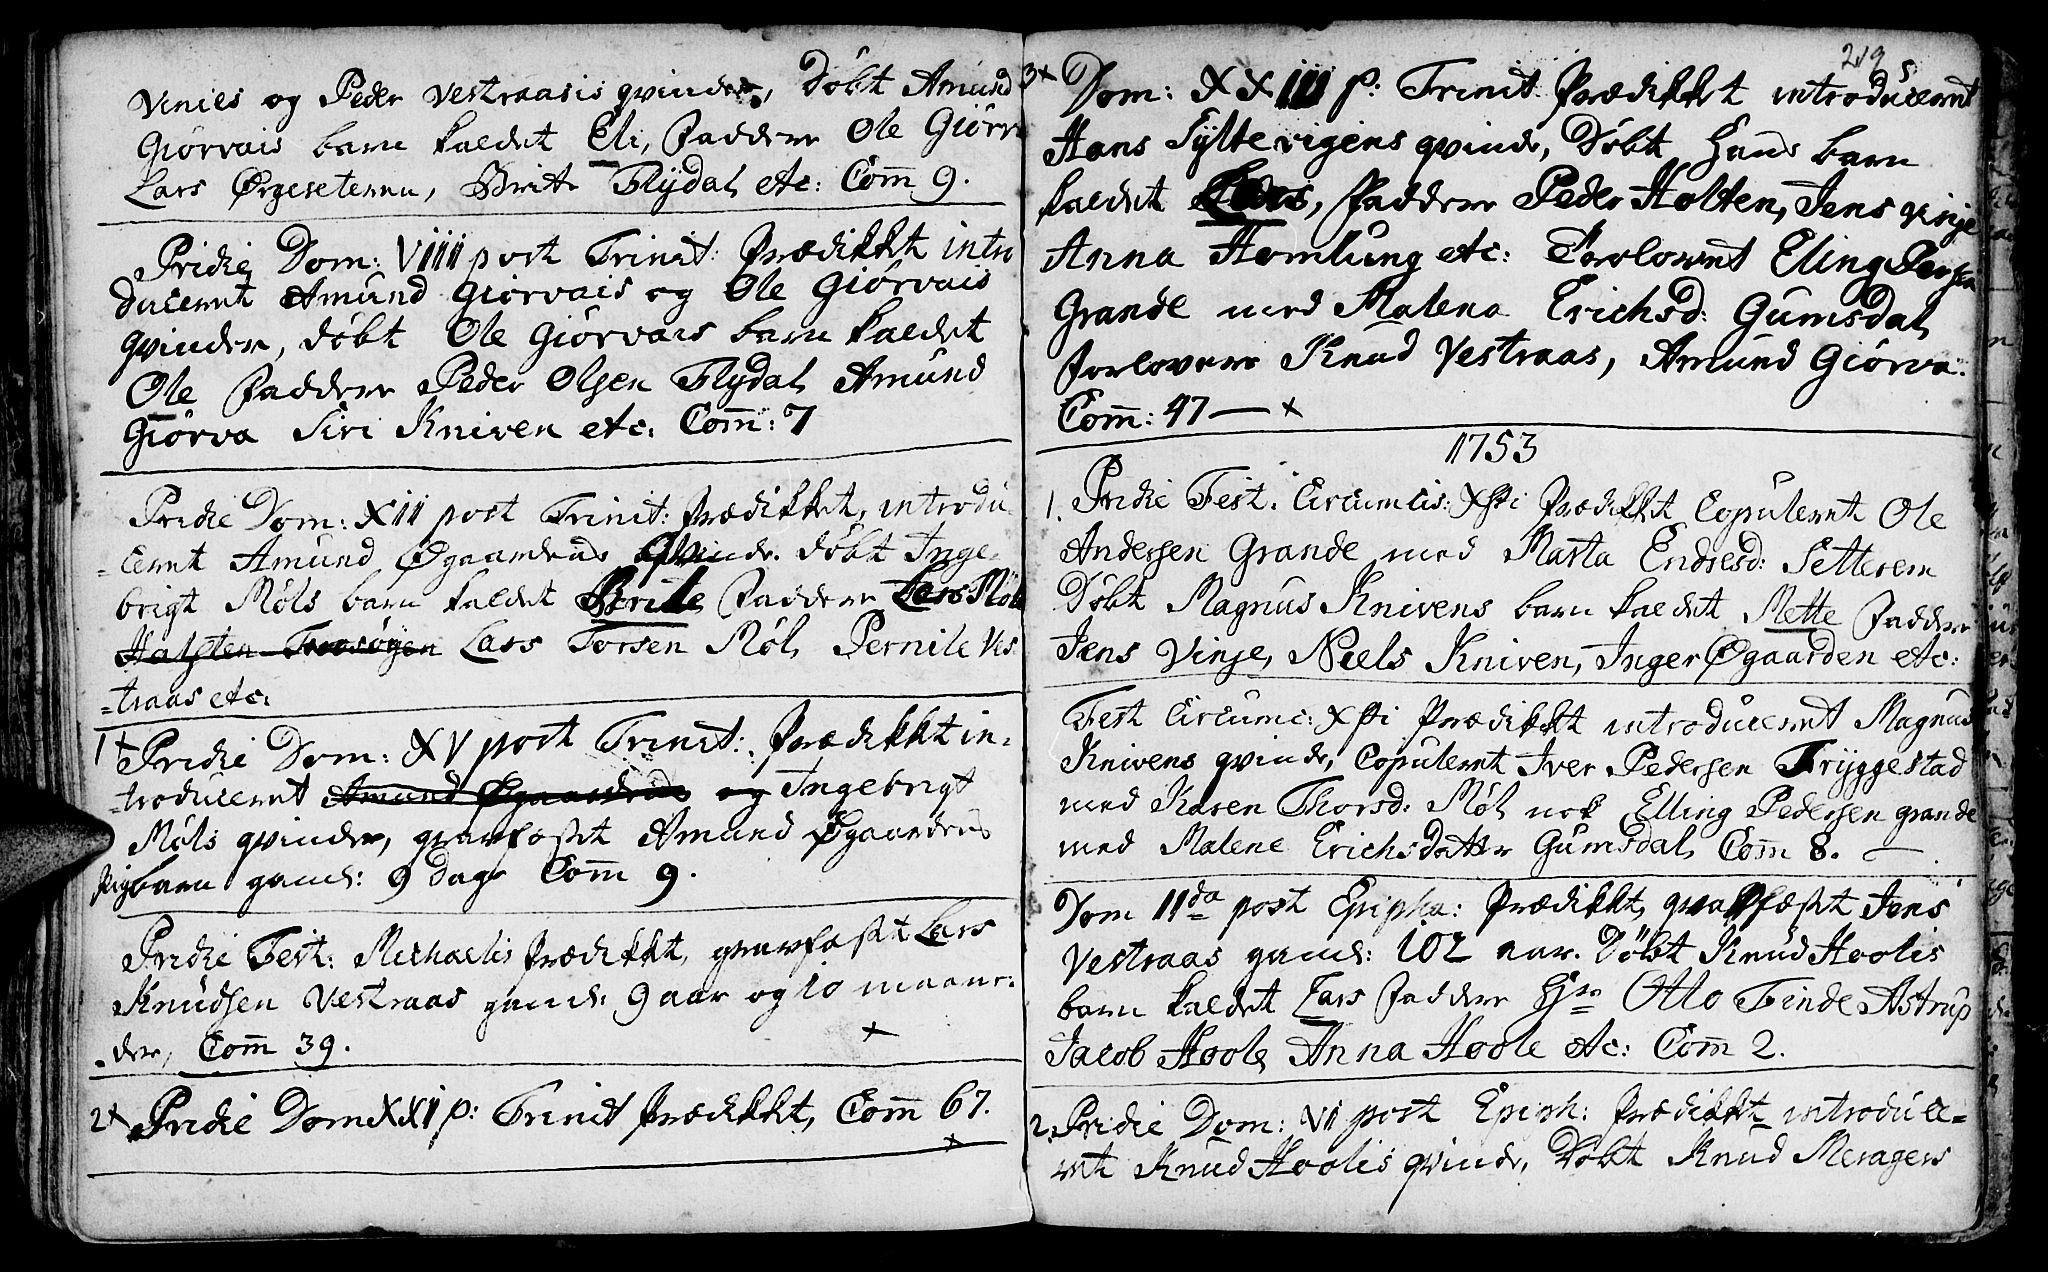 Venies og Peder Vestraasis qvinder, Døbt Amund
Giørvais barn kaldet Eli, faddere Ole Giørv
Lars Ørgeseternu, Brite Flÿdal, etc: Com̄ 9.
Pridie Dom: VIIII post Trinit: prædikket intro
duceret Amund Giørvais og Ole Giørvais
qvinder, døbt Ole Giørvais barn kaldet
Ole faddere Peder Olsen Flydal, Amund
Giörva Siri Kniven etc. Com̄: 7
Pridie Dom: XIII post Trinit: prædikket, introdu
=ceret Amund Øgaardens qvinde. døbt Inge
brigt Møls barn kaldet Brite, faddere Lars Møls
Halsten Lars Torsen Møl, Pernile Ves
=traas etc:
1+ Pridie Dom: XV post Trinit: prædikket in=
=troduceret Amund Øgaardens og Ingebrigt
Møls qvinder, gravfæstet Amund Øgaardens
pigbarn gaml: 9 dage Com̄ 9.
Pridie Fest: Michaelis prædikket, gravfæstet Lars
Knudsen Vestraas gaml: 9 aar og 10 maane:
=der, Com̄ 39. +
2+ Pridie Dom XXII p: Trinit prædikket, Com̄ 67.
+
219
5
3+ Dom: XXIII p: Trinit. prædikket introduceret
Hans Tÿltevigens qvinde, Døbt hans barn
kaldet Lars, faddere Peder Holten, Jens Vinje
Anna Homlung etc: Forlovet Eling Persen
Grande med Malena Erichsd: Gumsdal,
forlovere Knud Vestraas, Amund Giörva:
Com̄: 47 — +
1753
1. Pridie Fest. Circumcis: Xsti prædikket Copuleret Ole
Andersen Grande med Marta Endresd: Setterem
Døbt Magnus Knivens barn kaldet Mette faddere
Jens Vinje, Niels Kniven, Inger Øgaarden etc:
Fest Circumc: Xsti prædikket introduceret Magnus
Knivens qvinde, Copuleret Iver Pedersen Trÿggestad
med Karen Thorsd: Møl, nok Elling Pedersen grande
med Malene Erichsdatter Gumsdal, Com̄ 8. —
Dom IIda post Epipha: prædikket, gravfæstet Jens
Vestraas gaml: 102 aar. Døbt Knud Hoolis
barn kaldet Lars faddere Hr Otto Finde Astrup
Jacob Hoole, Anna Hoole etc: Com̄ 2.
2. Pridie Dom: VI post Epiph: prædikket introduce=
ret Knud Hoolis qvinde, Døbt Knud Meragers